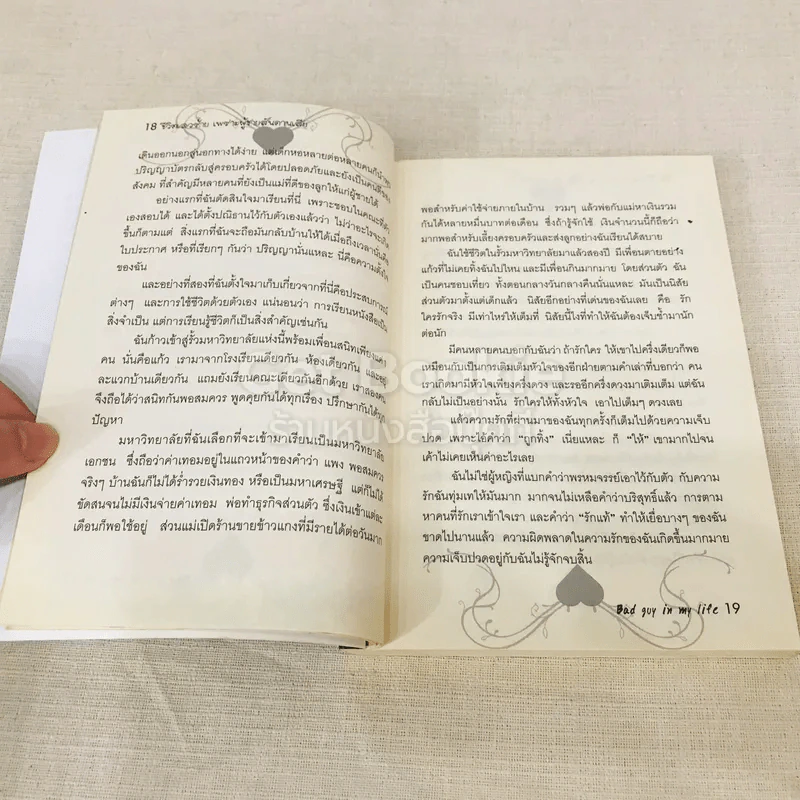 18 ชีวิตเลวร้าย เพราะผู้ชายสันดานเสีย
เดินออกนอกลู่นอกทางได้ง่าย แต่เด็กหอหลายต่อหลายคนก็นำเอา
ปริญญาบัตรกลับสู่ครอบครัวได้โดยปลอดภัยและยังเป็นคนดีของ
สังคม ที่สำคัญมีหลายคนที่ยังเป็นแม่ที่ดีของลูกให้แก่ผู้ชายได้
อย่างแรกที่ฉันตัดสินใจมาเรียนที่นี่ เพราะชอบในคณะที่ตัว
เองสอบได้ และได้ตั้งปณิธานไว้กับตัวเองแล้วว่า ไม่ว่าอะไรจะเกิด
ขึ้นก็ตามแต่ สิ่งแรกที่ฉันจะถือมันกลับบ้านให้ได้เมื่อถึงเวลานั้นคือ
ใบประกาศ หรือที่เรียกๆ กันว่า ปริญญานั่นแหละ นี่คือความตั้งใจ
ของฉัน
และอย่างที่สองที่ฉันตั้งใจมาเก็บเกี่ยวจากที่นี่คือประสบการณ์
ต่างๆ และการใช้ชีวิตด้วยตัวเอง แน่นอนว่า การเรียนหนังสือเป็น
สิ่งจำเป็น แต่การเรียนรู้ชีวิตก็เป็นสิ่งสำคัญเช่นกัน
ฉันก้าวเข้าสู่รั้วมหาวิทยาลัยแห่งนี้พร้อมเพื่อนสนิทเพียงแค่
คน นั่นคือแก้ว เรามาจากโรงเรียนเดียวกัน ห้องเดียวกัน และอยู่
ละแวกบ้านเดียวกัน แถมยังเรียนคณะเดียวกันอีกด้วย เราสองคน
จึงถือได้ว่าสนิทกันพอสมควร พูดคุยกันได้ทุกเรื่อง ปรึกษากันได้ทุก
ปัญหา
มหาวิทยาลัยที่ฉันเลือกที่จะเข้ามาเรียนเป็นมหาวิทยาลัย
เอกชน ซึ่งถือว่าค่าเทอมอยู่ในแถวหน้าของคำว่า แพง พอสมควร
จริงๆ บ้านฉันก็ไม่ได้ร่ำรวยเงินทอง หรือเป็นมหาเศรษฐี แต่ก็ไม่ได้
ขัดสนจนไม่มีเงินจ่ายค่าเทอม พ่อทำธุรกิจส่วนตัว ซึ่งเงินเข้าแต่ละ
เดือนก็พอใช้อยู่ ส่วนแม่เปิดร้านขายข้าวแกงที่มีรายได้ต่อวันมาก
พอสำหรับค่าใช้จ่ายภายในบ้าน รวมๆ แล้วพ่อกับแม่หาเงินรวม
กันได้หลายหมื่นบาทต่อเดือน ซึ่งถ้ารู้จักใช้ เงินจำนวนนี้ก็ถือว่า
มากพอสำหรับเลี้ยงครอบครัวและส่งลูกอย่างฉันเรียนได้สบาย
ฉันใช้ชีวิตในรั้วมหาวิทยาลัยมาแล้วสองปี มีเพื่อนตายอย่าง
แก้วที่ไม่เคยทิ้งฉันไปไหน และมีเพื่อนกินมากมาย โดยส่วนตัว ฉัน
เป็นคนชอบเที่ยว ทั้งตอนกลางวันกลางคืนนั่นแหละ มันเป็นนิสัย
ส่วนตัวมาตั้งแต่เด็กแล้ว นิสัยอีกอย่างที่เด่นของฉันเลย คือ รัก
ใครรักจริง มีเท่าไหร่ให้เต็มที่ นิสัยนี้ไงที่ทำให้ฉันต้องเจ็บช้ำมานัก
ต่อนัก
มีคนหลายคนบอกกับฉันว่า ถ้ารักใคร ให้เขาไปครึ่งเดียวก็พอ
เหมือนกับเป็นการเติมเต็มหัวใจของอีกฝ่ายตามคำเล่าที่บอกว่า คน
เราเกิดมามีหัวใจเพียงครึ่งดวง และรออีกครึ่งดวงมาเติมเต็ม แต่ฉัน
กลับไม่เป็นอย่างนั้น รักใครให้ทั้งหัวใจ เอาไปเต็มๆ ดวงเลย
แล้วความรักที่ผ่านมาของฉันทุกครั้งก็เต็มไปด้วยความเจ็บ
ปวด เพราะไอ้คำว่า “ถูกทิ้ง” เนี่ยแหละ ก็ “ให้” เขามากไปจน
เค้าไม่เคยเห็นค่าอะไรเลย
ฉันไม่ใช่ผู้หญิงที่แบกคำว่าพรหมจรรย์เอาไว้กับตัว กับความ
รักฉันทุ่มเทให้มันมาก มากจนไม่เหลือคำว่าบริสุทธิ์แล้ว การตาม
หาคนที่รักเราเข้าใจเรา และคำว่า “รักแท้” ทำให้เยื่อบางๆ ของฉัน
ขาดไปนานแล้ว ความผิดพลาดในความรักของฉันเกิดขึ้นมากมาย
ความเจ็บปวดอยู่กับฉันไม่รู้จักจบสิ้น
Bad guy in my life 19